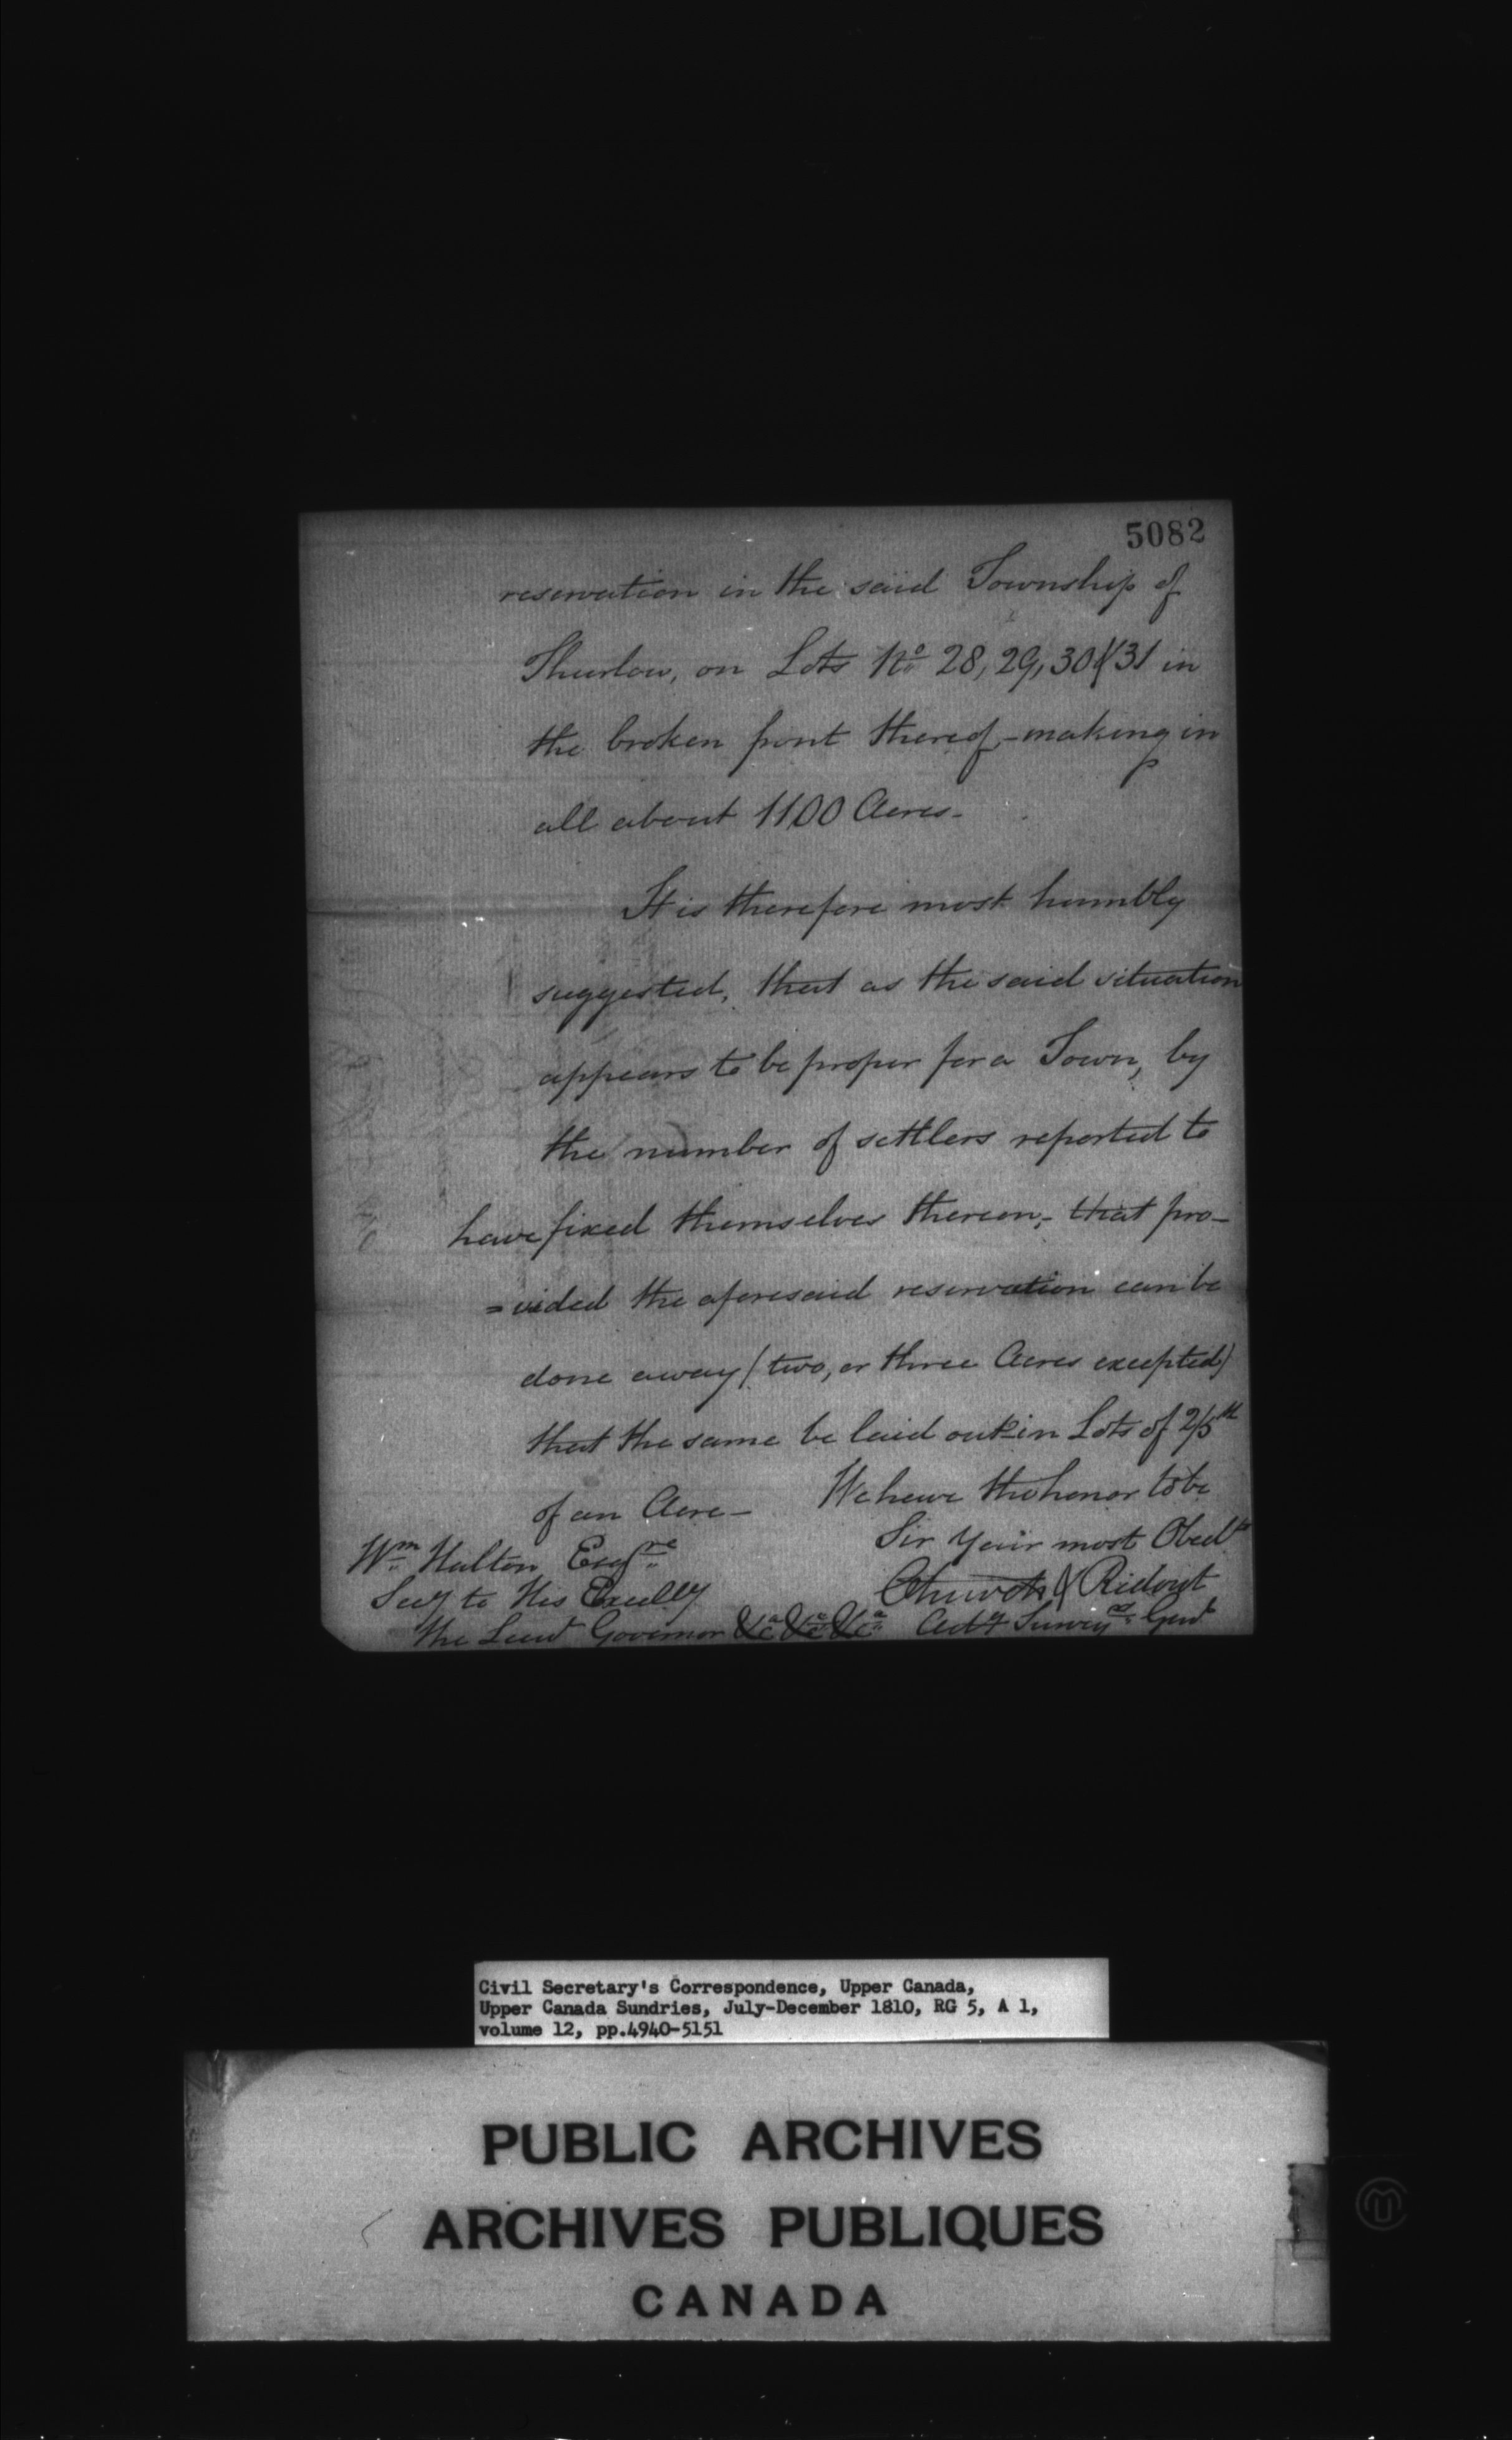 5082
reservation in the said Township of
Thurlow, on Lots No 28, 29, 30 & 31 in
the broken front thereof - making in
all about 1100 Acres -
It is therefore most humbly
suggested, that as the said situation
appears to be proper for a Town, by
the number of settlers reported to
have fixed themselves thereon, - that pro-
=vided the aforesaid reservation can be
done away (two, or three Acres excepted)
that the same be laid out in Lots of 2/5th
of an Acre -
We have the honor to be
Sir Your most Obedt
Wm Halton Esqre
Secy to His Excelly
the Lieut Governor &ca &ca &ca
Chewett & Ridout
Actg Surveyrs Genl
Civil Secretary's Correspondence, Upper Canada,
Upper Canada Sundries, July-December 1810, RG 5, A 1,
volume 12, pp.4940-5151
PUBLIC ARCHIVES
ARCHIVES PUBLIQUES
CANADA